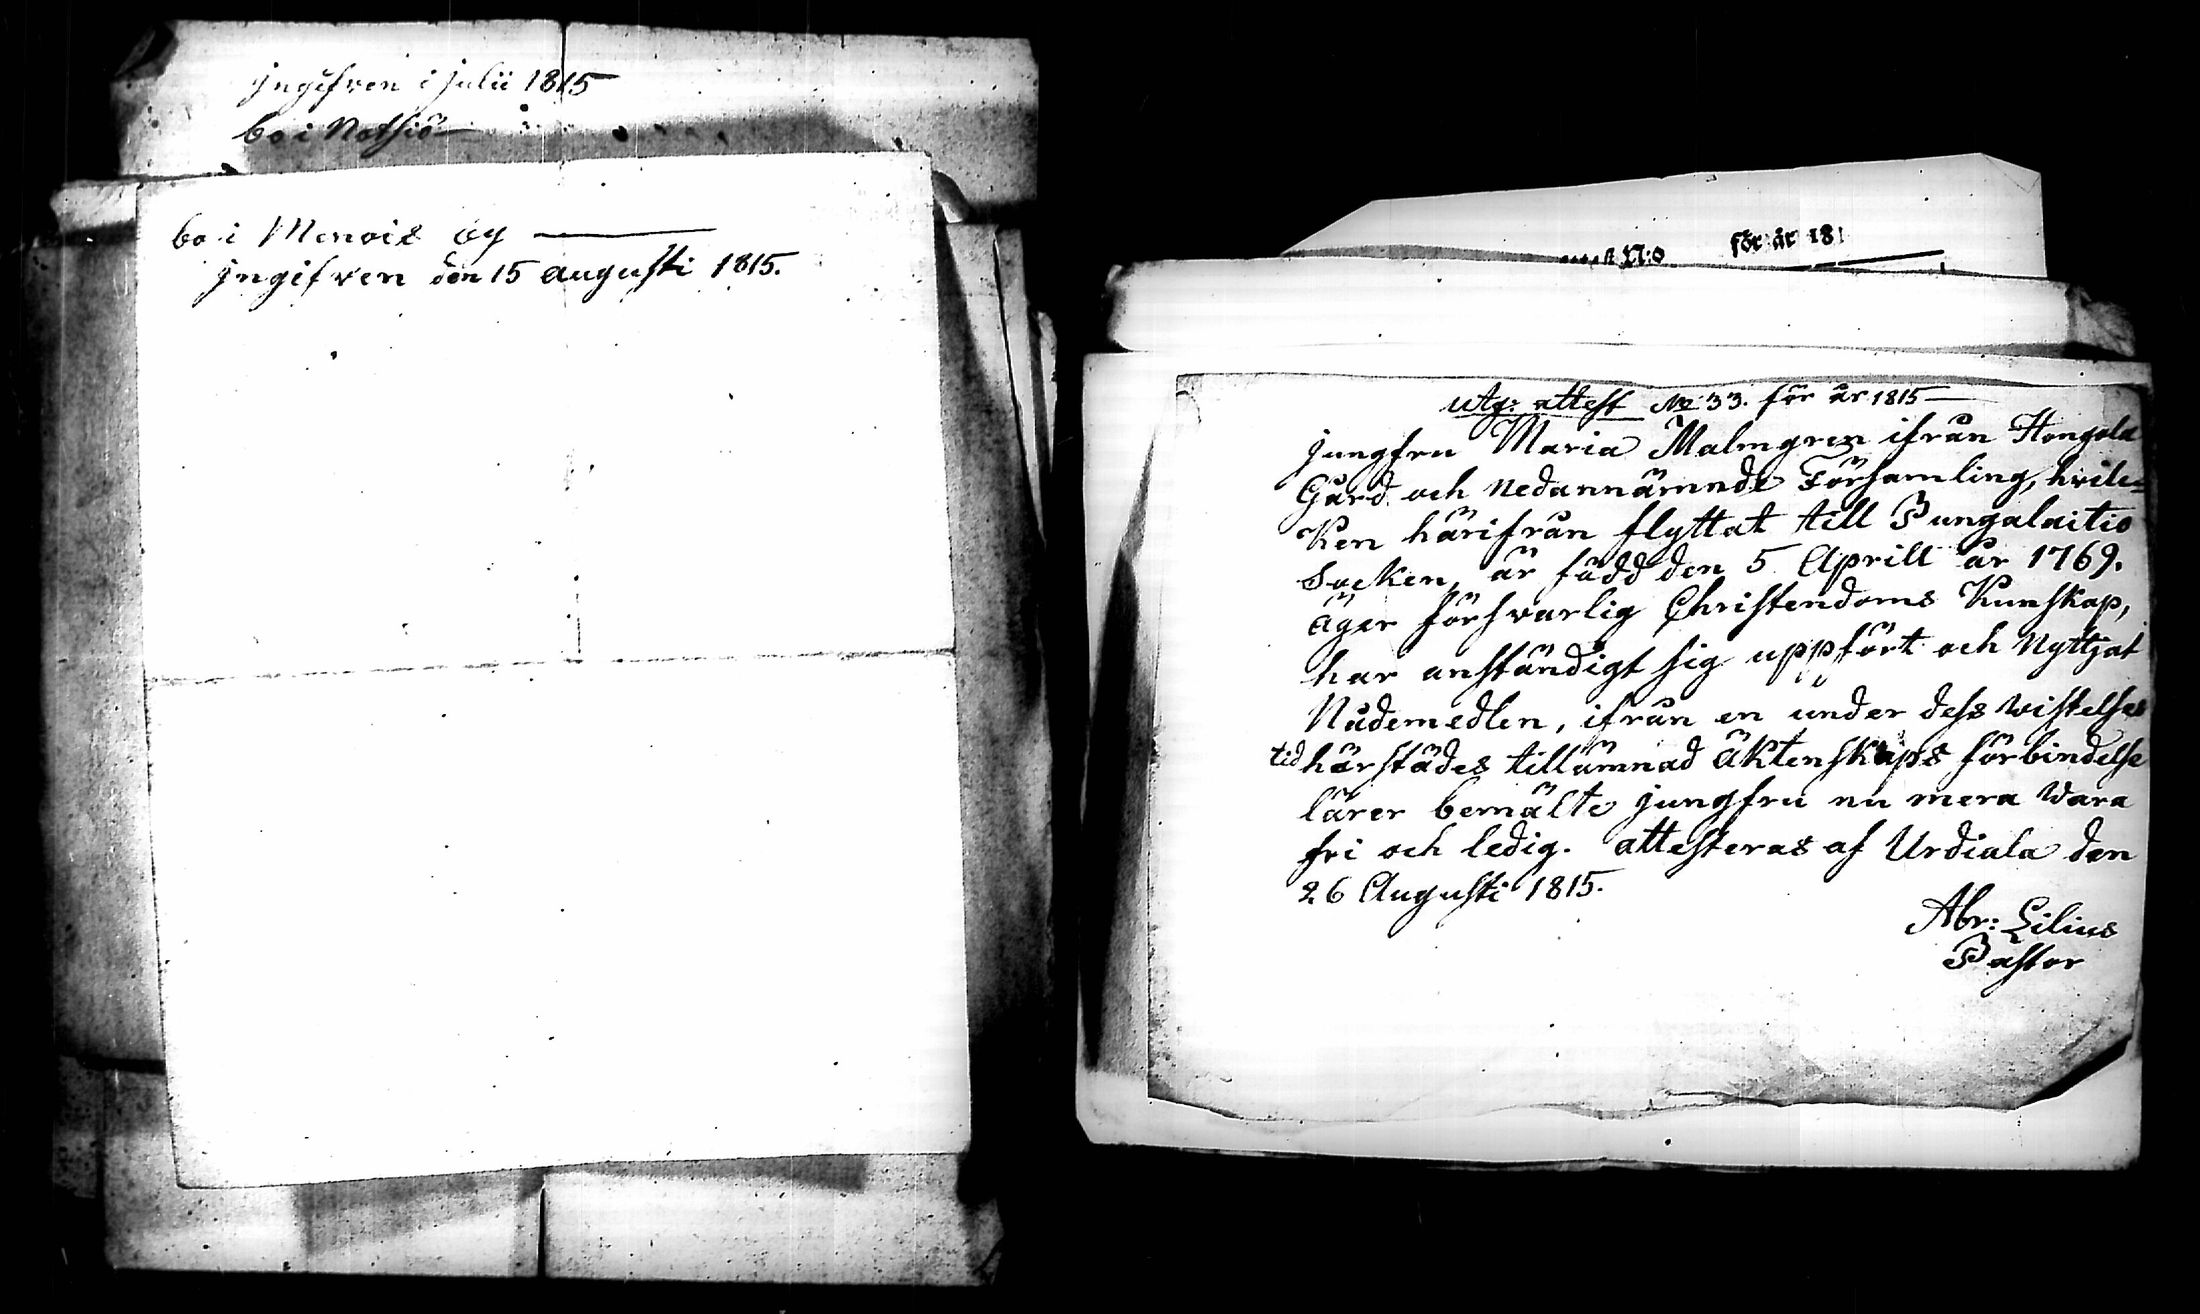 jngifven i julii 1815
bo i Notsiö
bo i Menois by
jngifven den 15 augusti 1815.
N:o för år 181
utg: attest No 33. för år 1815
jungfru Maria Malmgren ifrån Hongola
Gård och nedannämnde Församling, hvil-
ken härifrån flyttat till Pungalaitio
Socken, är född den 5 Aprill år 1769.
äger försvarlig Christendoms Kunskap,
har anständigt sig uppfört och Nyttjat
Nådemedlen, ifrån en under dess wistelses
tid härstädes tillämnad äktenskaps förbindelse
lärer bemälte jungfru nu mera wara
fri och ledig. attesteras af Urdiala den
26 Augusti 1815.
Abr: Lilius
Pastor